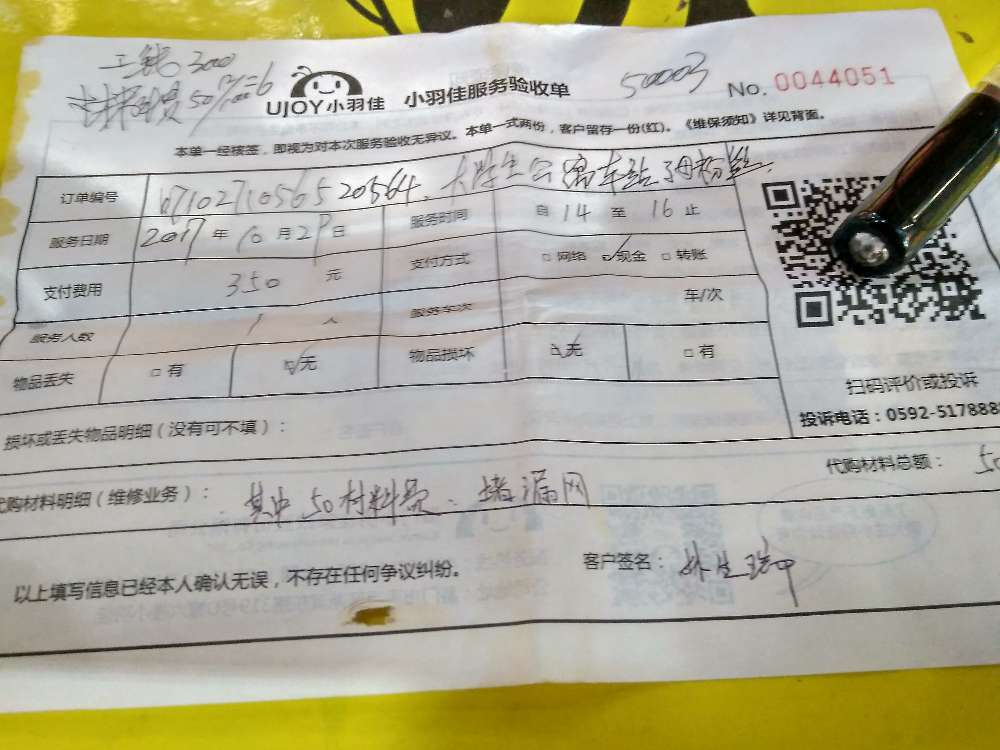 工钱300
材料费50
UJOY小羽佳 小羽佳服务验收单 50003 No. 0044051
本单一经核签，即视为对本次服务验收无异议。本单一式两份，客户留存一份(红)。《维保须知》详见背面。
订单编号 20564.
服务日期 2017年10月29日 服务时间 自14至16止
支付费用 350元 支付方式 □网络 ☑现金 □转账
服务人数 1人 服务车次 车/次
物品丢失 □有 ☑无 物品损坏 ☑无 □有
扫码评价或投诉
投诉电话：0592-5178888
损坏或丢失物品明细（没有可不填）：
代购材料总额： 50
代购材料明细（维修业务）： 其中50材料费、堵漏网
以上填写信息已经本人确认无误，不存在任何争议纠纷。 客户签名：